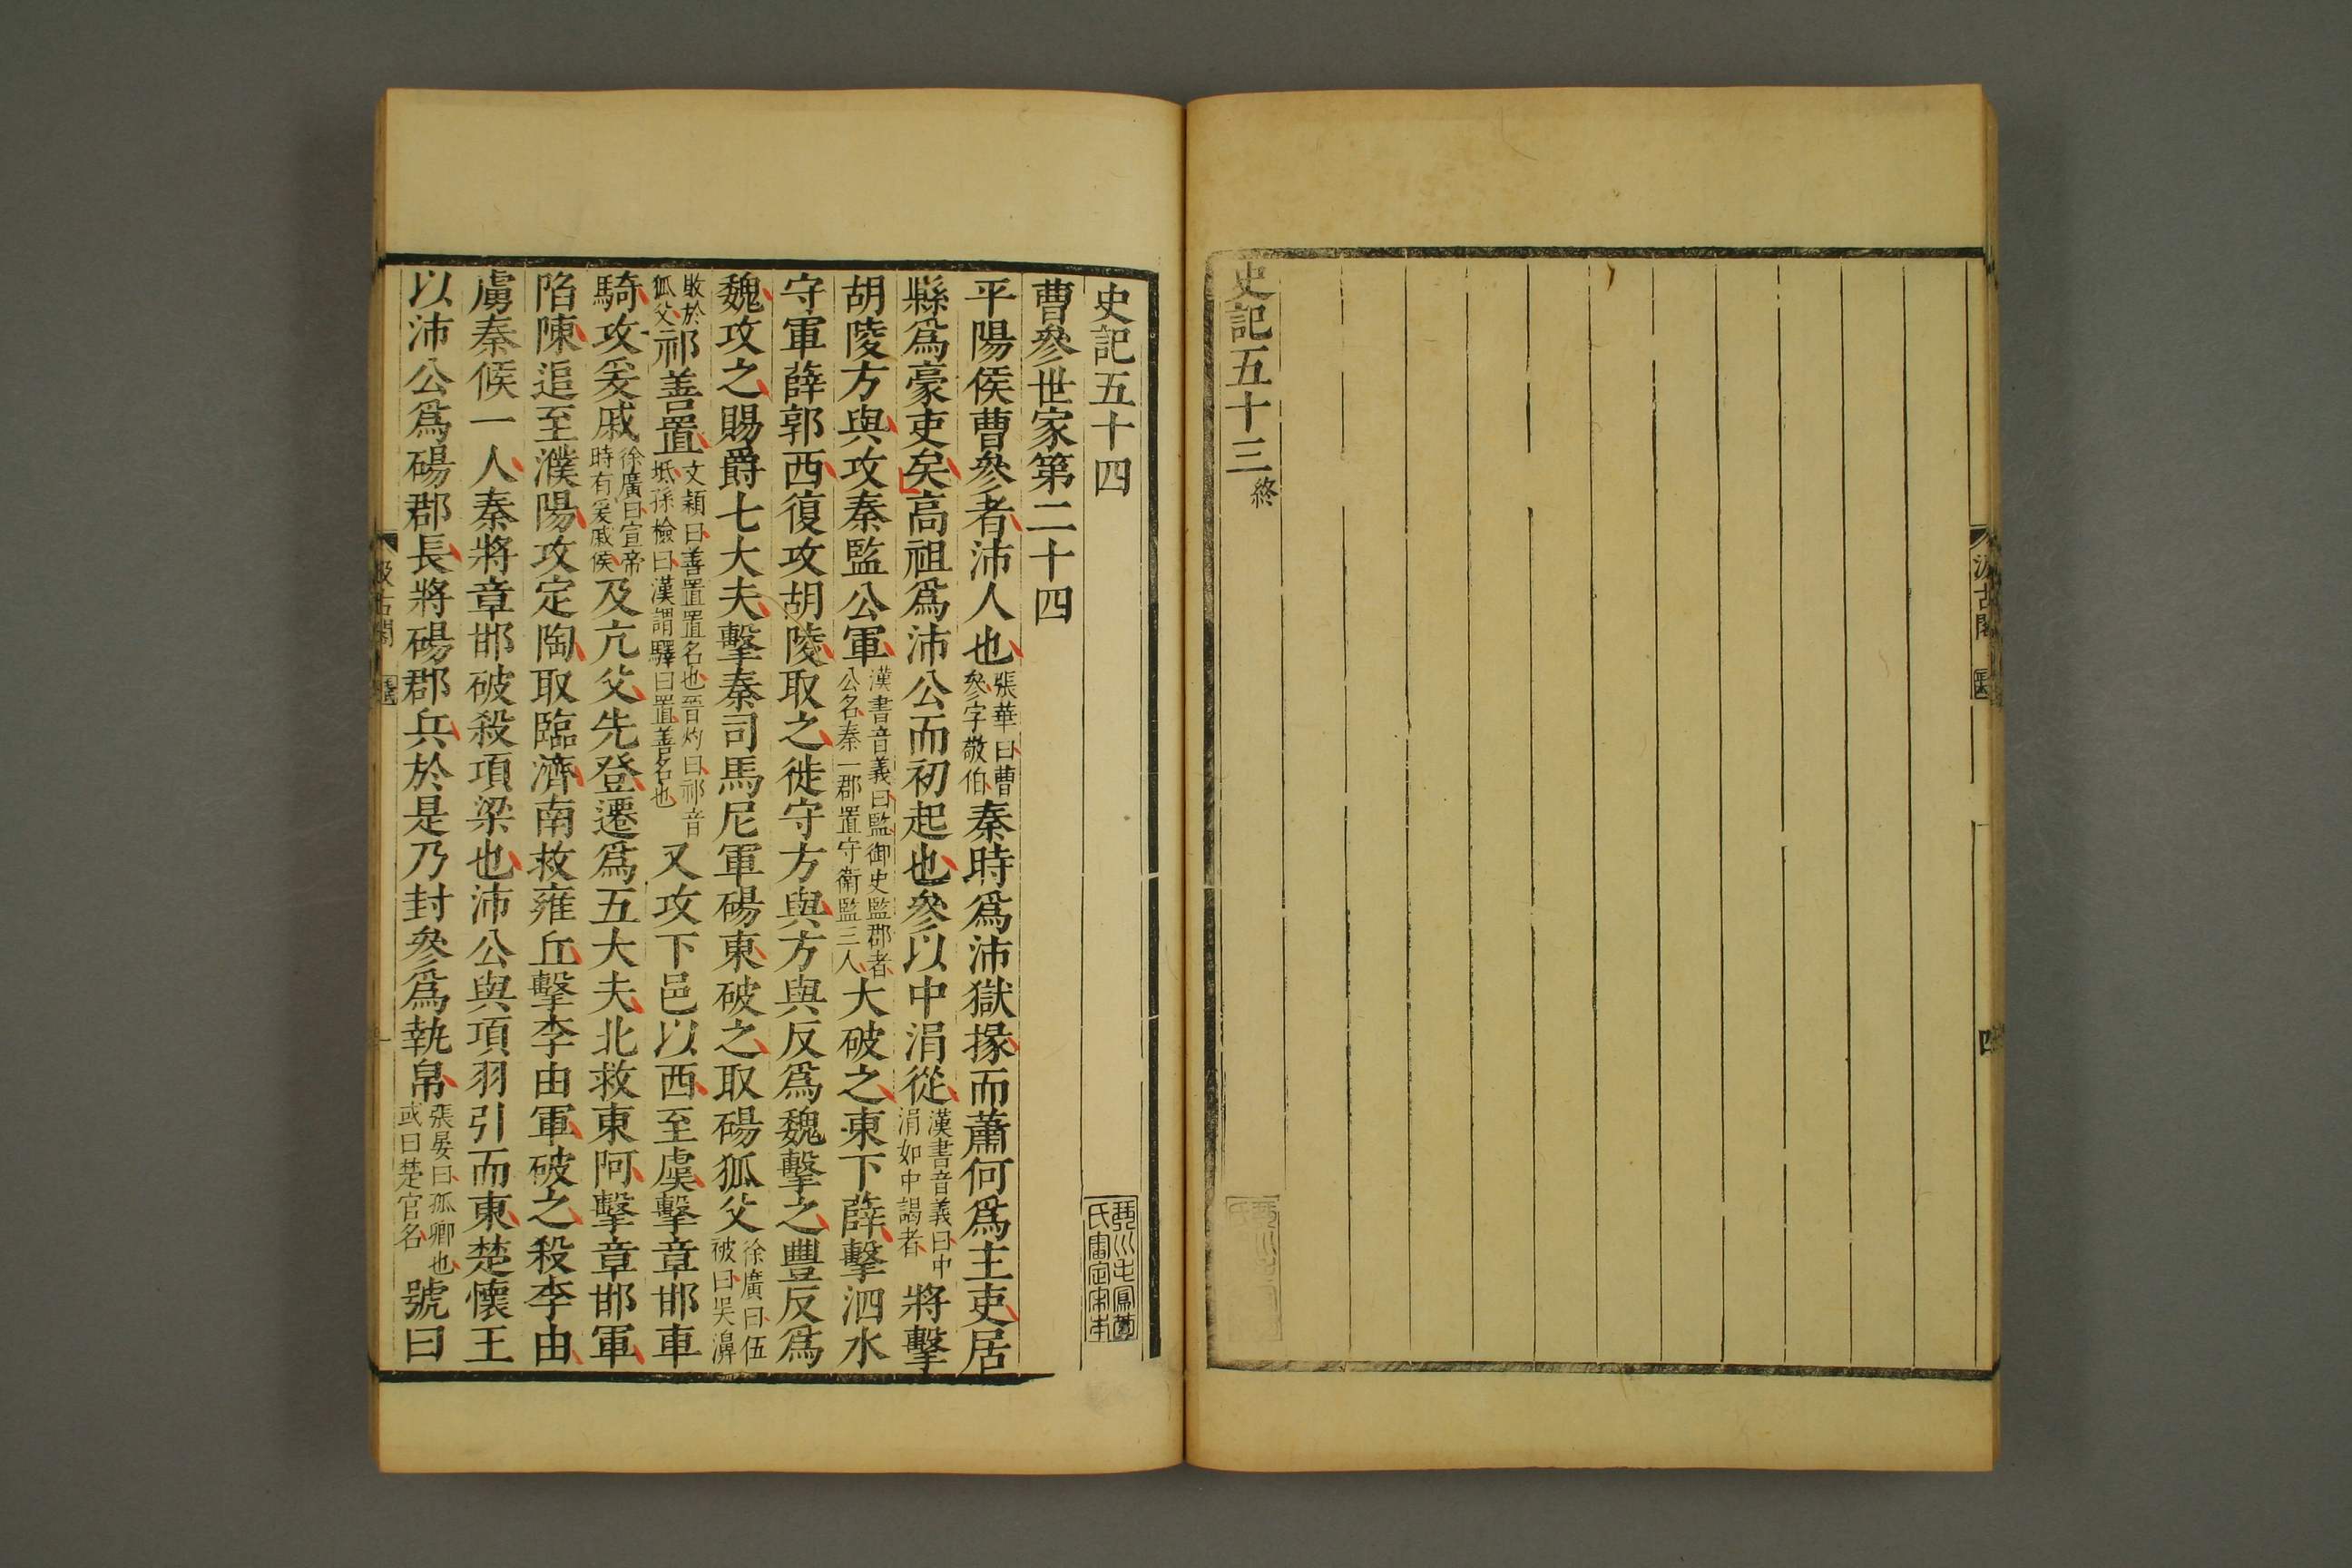 汲古閣
四
史記五十三終
史記五十四
琴川毛鳳苞氏審定宋本
曹參世家第二十四
平陽侯曹參者沛人也張華曰曹參字敬伯秦時爲沛獄掾而蕭何爲主吏居
縣爲豪吏矣高祖爲沛公而初起也參以中涓從漢書音義曰中涓如中謁者將擊
胡陵方與攻秦監公軍漢書音義曰監御史監郡者公名秦一郡置守衛監三人大破之東下薛擊泗水
守軍薛郭西復攻胡陵取之徙守方與方與反爲魏擊之豐反爲
魏攻之賜爵七大夫擊秦司馬尼軍碭東破之取碭狐父徐廣曰伍被曰吳濞
敗於狐父祁善置文穎曰善置置名也晉灼曰祁音坻孫檢曰漢謂驛曰置善名也又攻下邑以西至虞擊章邯車
騎攻爰戚徐廣曰宣帝時有爰戚侯及亢父先登遷爲五大夫北救東阿擊章邯軍
陷陳追至濮陽攻定陶取臨濟南救雍丘擊李由軍破之殺李由
虜秦候一人秦將章邯破殺項梁也沛公與項羽引而東楚懷王
以沛公爲碭郡長將碭郡兵於是乃封參爲執帛張晏曰孤卿也或曰楚官名號曰
汲古閣